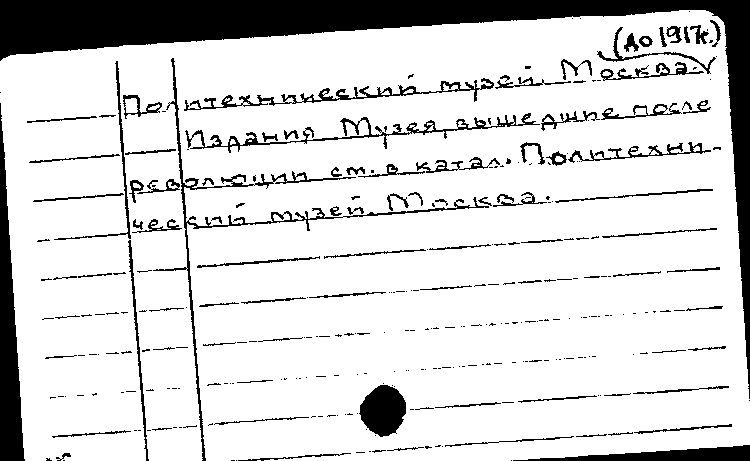 (до 1917г.)
Политехнический музей. Москва.
Издания Музея, вышедшие после
революции см. в катал. Политехни-
ческий музей. Москва.